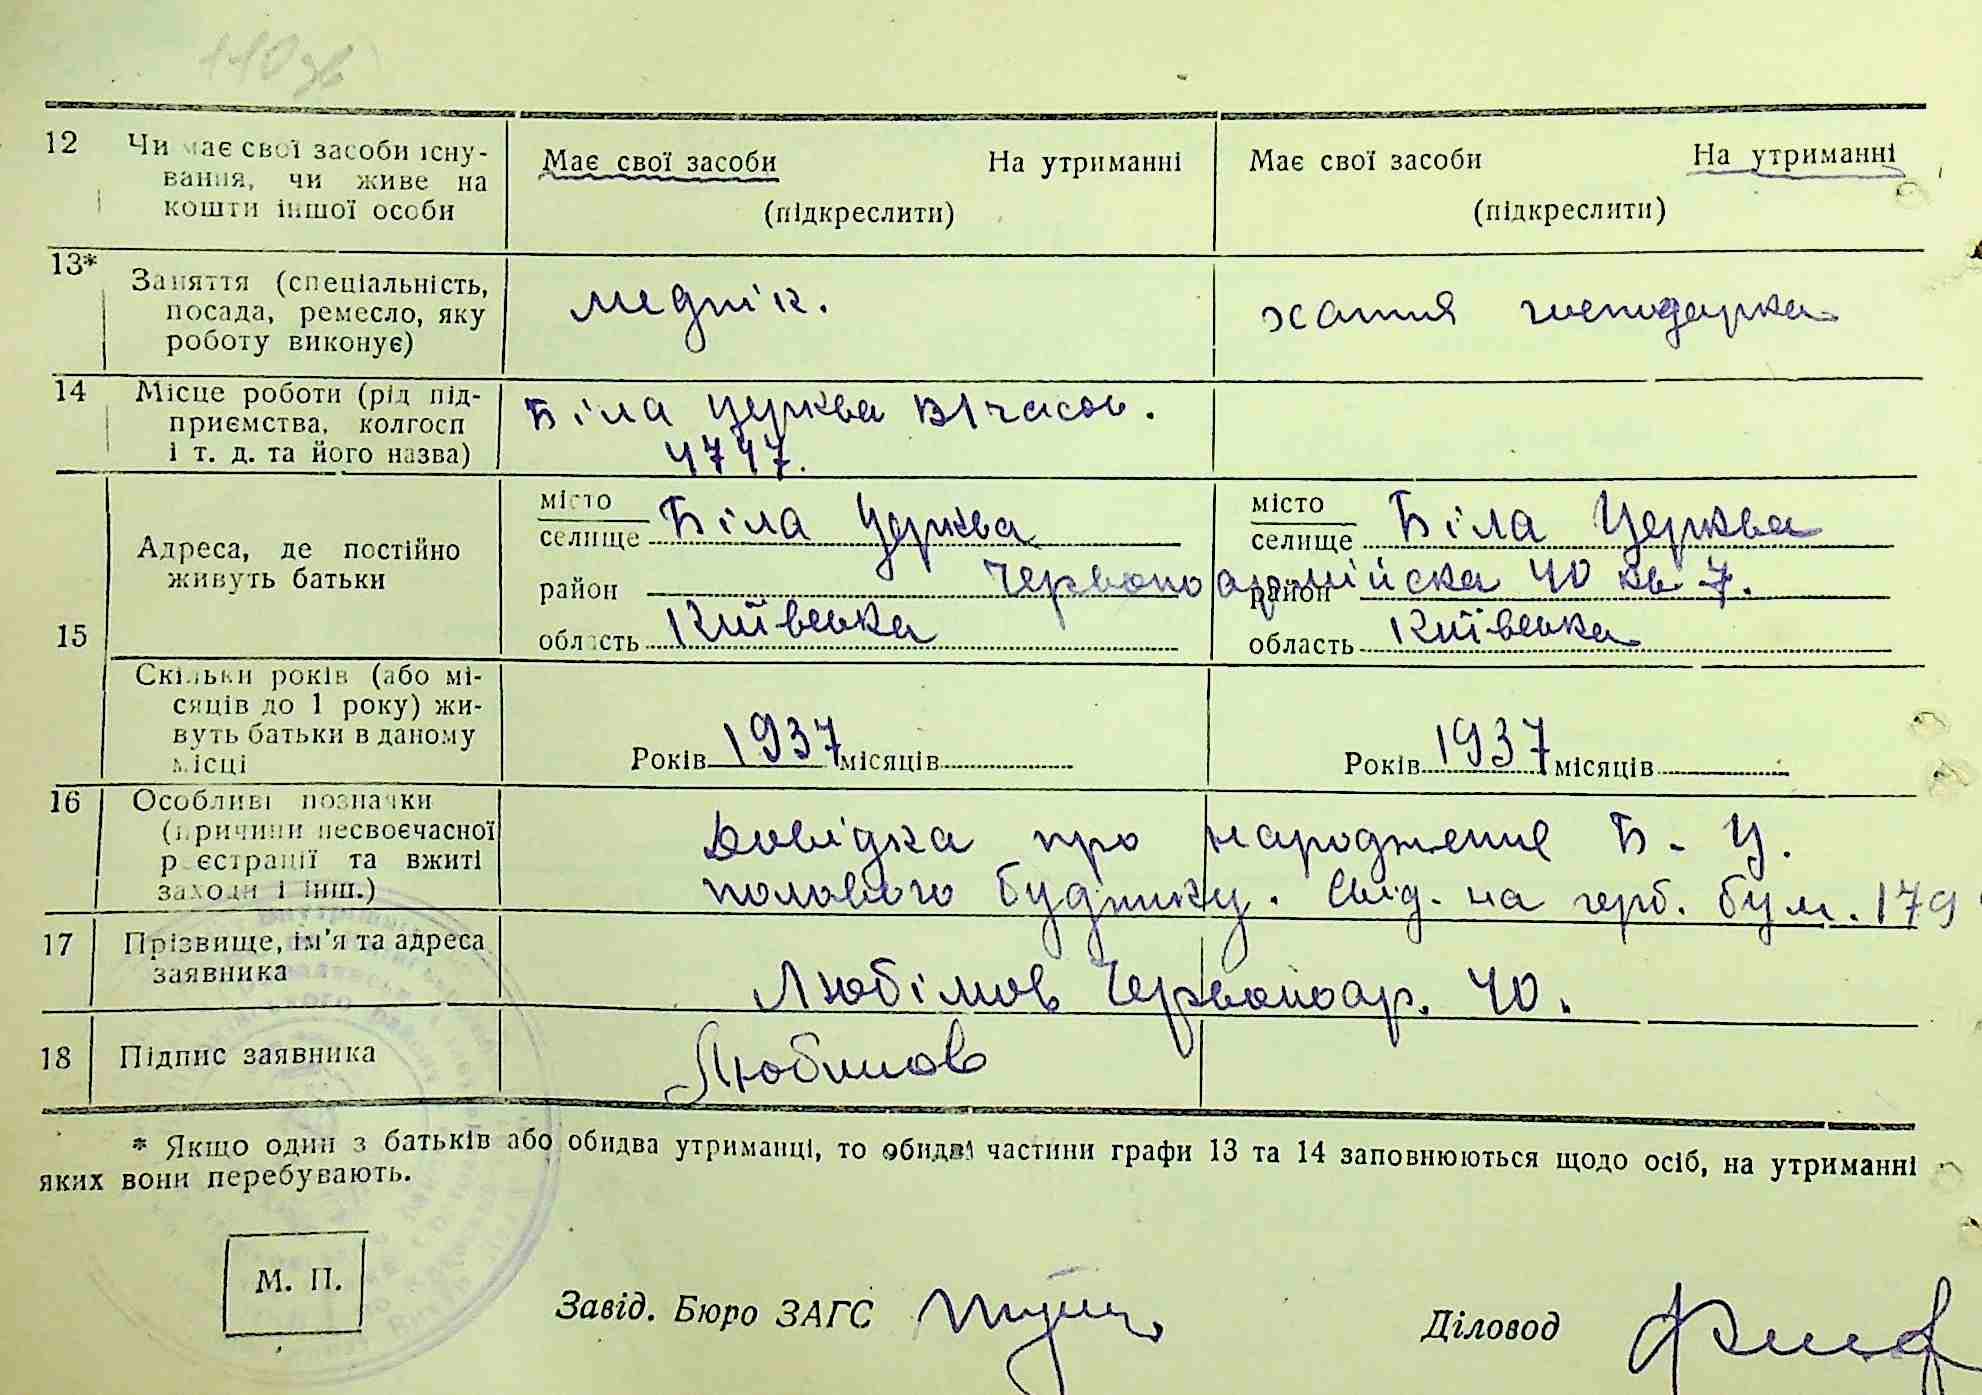 110 зв
12 Чи має свої засоби існу-
вання, чи живе на
кошти іншої особи
Має свої засоби На утриманні
(підкреслити)
Має свої засоби На утриманні
(підкреслити)
13* Заняття (спеціальність,
посада, ремесло, яку
роботу виконує)
меднік.
хатня господарка
14 Місце роботи (рід під-
приємства, колгосп
і т. д. та його назва)
Біла Церква В/часов.
4747.
15 Адреса, де постійно
живуть батьки
місто
селище Біла Церква
район
область Київська
місто
селище Біла Церква
район
Червоноармійска 40 кв 7.
область Київська
Скільки років (або мі-
сяців до 1 року) жи-
вуть батьки в даному
місці
Років 1937 місяців
Років 1937 місяців
16 Особливі позначки
(причини несвоєчасної
реєстрації та вжиті
заходи і інш.)
Довідка про народження Б-Ц.
полового будинку. Свід. на герб. бум. 179
17 Прізвище, ім'я та адреса
заявника
Любімов Червоноар. 40.
18 Підпис заявника
Любимов
* Якщо один з батьків або обидва утриманці, то обидві частини графи 13 та 14 заповнюються щодо осіб, на утриманні
яких вони перебувають.
М. П.
Завід. Бюро ЗАГС
Діловод